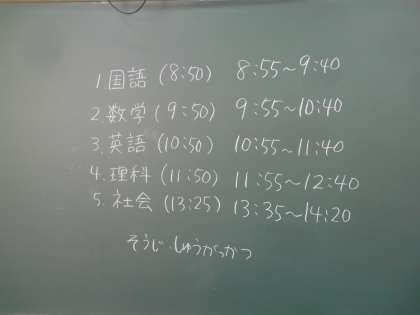 1.国語(8:50) 8:55～9:40
2.数学(9:50) 9:55～10:40
3.英語(10:50) 10:55～11:40
4.理科(11:50) 11:55～12:40
5.社会(13:25) 13:35～14:20
そうじ・しゅうがっかつ